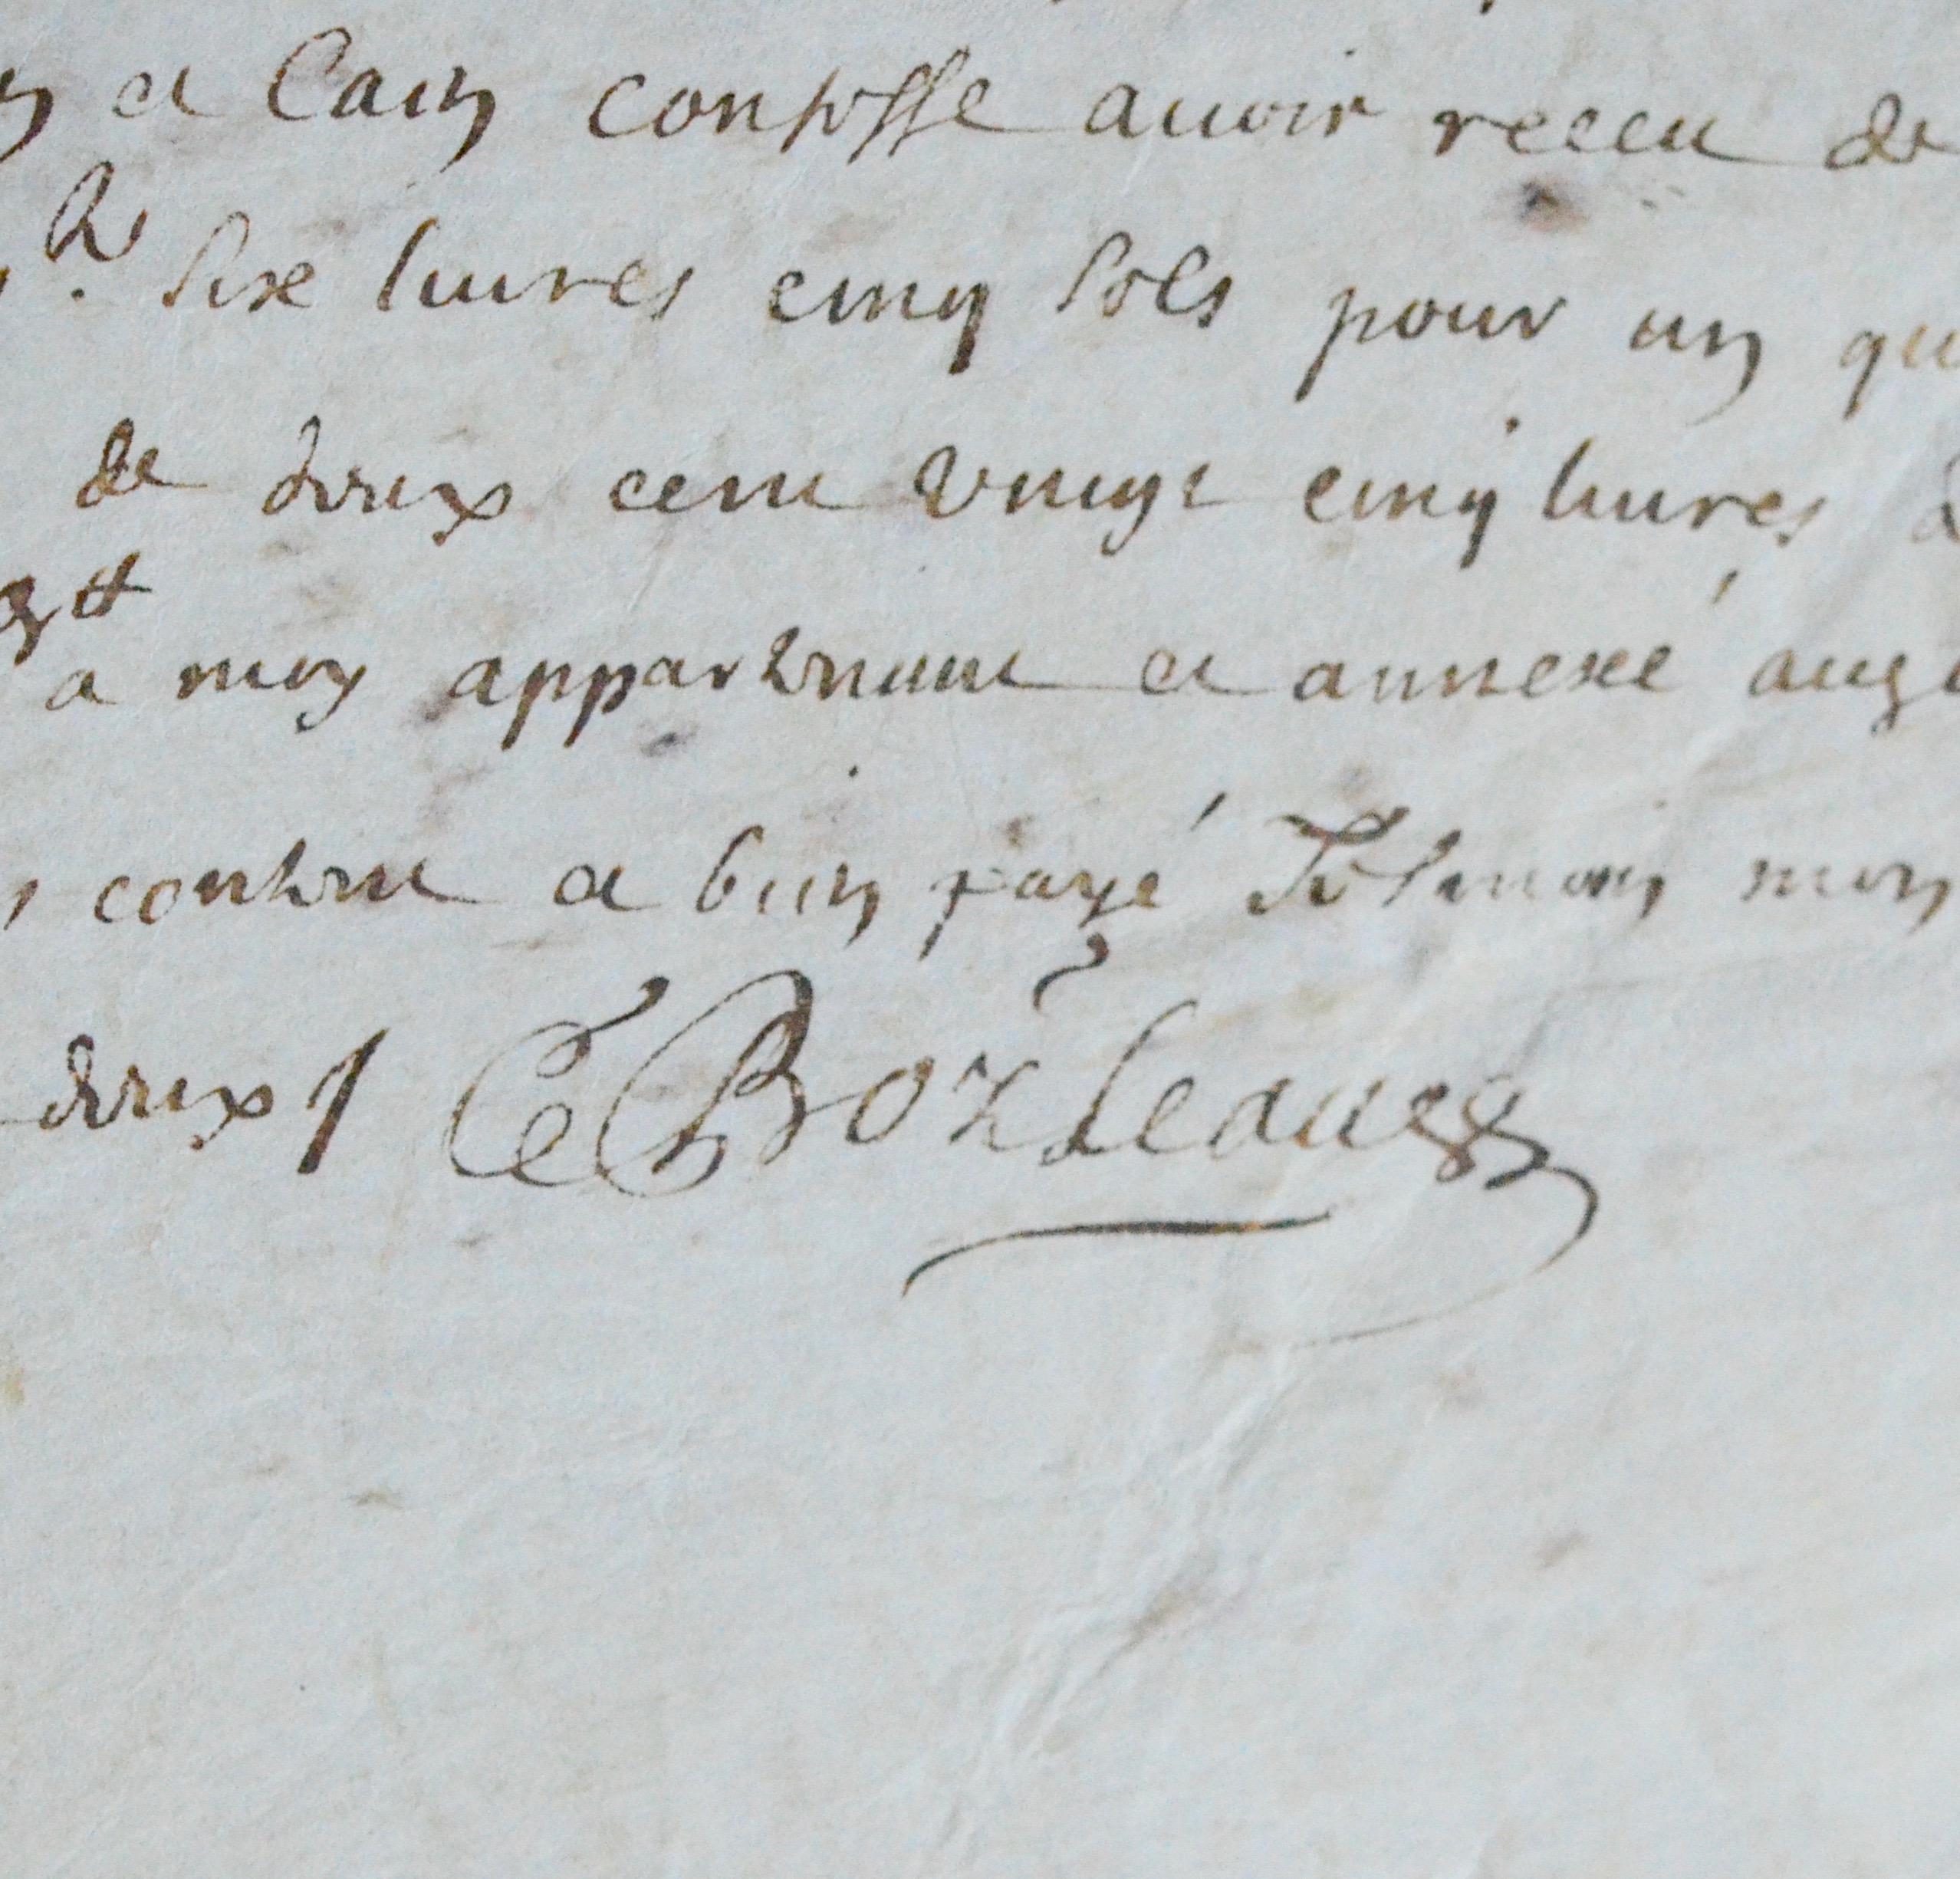 et Caen confesse auoir receu de
six liures cinq sols pour un qu
de deux cent vingt cinq liures
a moy appartenant et annexé aug
content et bien payé Tesmoin mon
deux